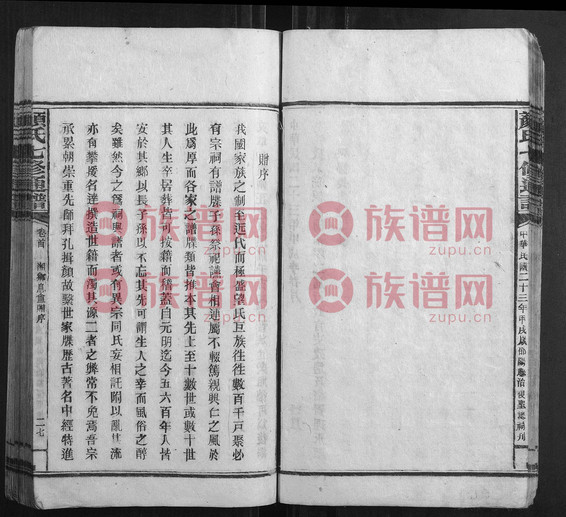 顏氏七修通譜
中華民國二十三年甲戌歲
贈序
我國家族之制至近代而極盛望氏巨族往往數百千戸聚必
有宗祠有譜牒子孫祭祀讌會相連屬不輟篤親興仁之風於
此爲厚而各家之譜牒類皆推本其先上至十數世或數十世
其人生卒居葬皆可按籍而稽自元明迄今五六百年人皆
安於其鄉以長子孫以不忘其先可謂生人之幸而風俗之醇
矣雖然今之爲祠與譜者或有異宗同氏妄相託附以亂其流
亦有攀援名達撰造世籍而濁其源二者之弊常不免焉吾宗
承累朝崇重先師拜孔揖顏故繫世家牒歷古著名中經特進
顏氏七修通譜
卷首
序
二七
族谱网
zupu.cn
族谱网
zupu.cn
族谱网
zupu.cn
族谱网
zupu.cn